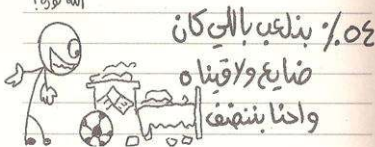 ٥٤٪ بنلعب باللي كان
ضايع ولاقيناه
واحنا بننضف